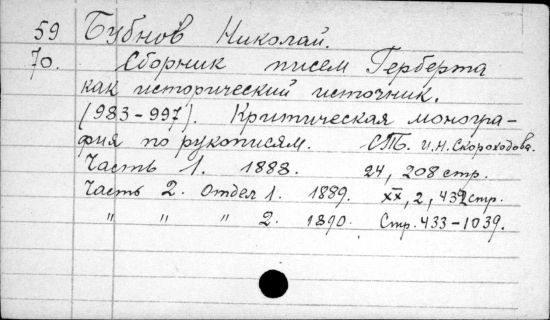 59 Бубнов Николай.
70. Сборник писем Герберта
как исторический источник.
(983-997). Критическая моногра-
фия по рукописям. СПб. И.Н.Скороходова.
Часть 1. 1888. 24, 208 стр.
Часть 2. Отдел 1. 1889. XX, 2, 432 стр.
" " " 2. 1890. Стр. 433-1039.